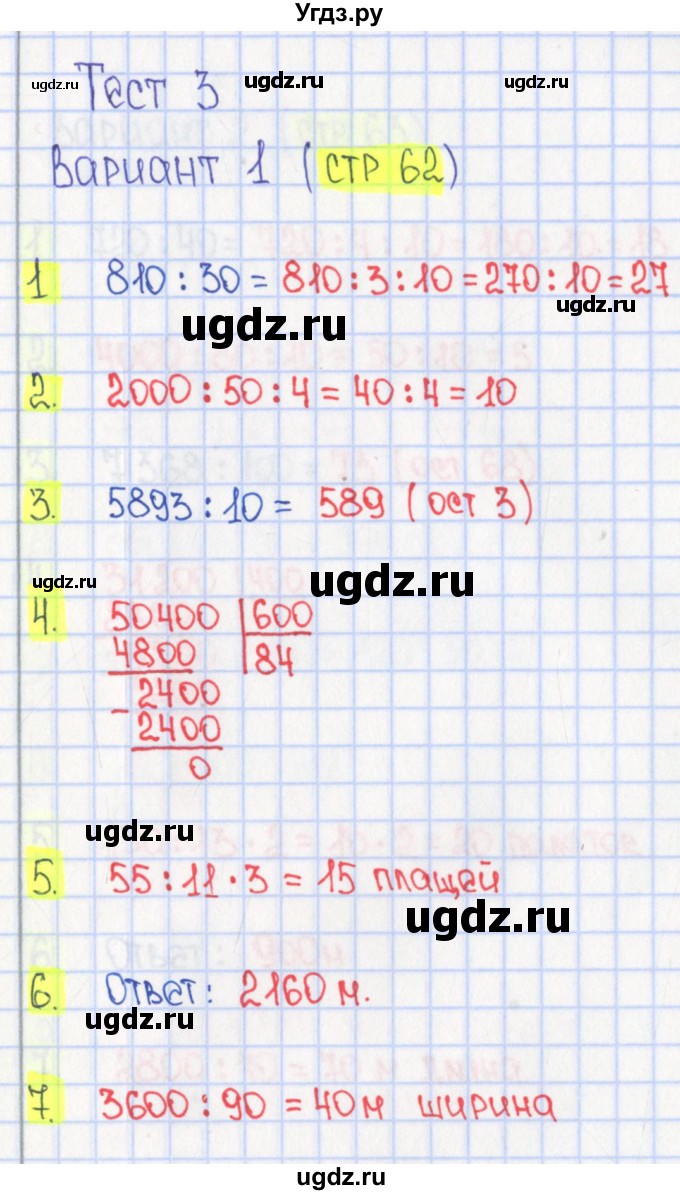 Угдз.ру
ugdz.ru ugdz.ru ugdz.ru
Тест 3
Вариант 1 (стр 62)
1 810 : 30 = 810 : 3 : 10 = 270 : 10 = 27
ugdz.ru ugdz.ru
2. 2000 : 50 : 4 = 40 : 4 = 10
3. 5893 : 10 = 589 (ост 3)
ugdz.ru ugdz.ru
4. 50400 | 600
4800 | 84
- 2400
2400
0
ugdz.ru
5. 55 : 11 · 3 = 15 плащей
ugdz.ru
6. Ответ: 2160 м.
ugdz.ru ugdz.ru
7. 3600 : 90 = 40 м ширина
ugdz.ru